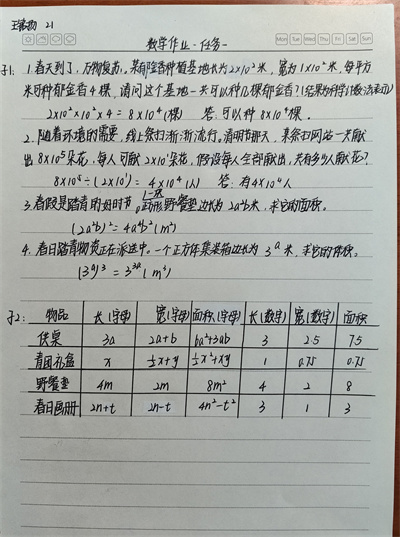 21
数学作业-任务一
Mon Tue Wed Thu Fri Sat Sun
子1: 1.春天到了,万物复苏。某郁金香种植基地长为2×10²米,宽为1×10²米,每平方
米可种郁金香4棵,请问这个基地一共可以种几棵郁金香?(结果为科学计数法表示)
2×10²×10²×4=8×10⁴(棵) 答:可以种8×10⁴棵.
2.随着环境的需要,线上祭扫渐渐流行。清明节那天,某祭扫网站一天献
出8×10⁵朵花,每人可献2×10¹朵花,假设每人全部献出,共有多少人献花?
8×10⁵÷(2×10¹)=4×10⁴(人) 答:有4×10⁴人
3.春假是踏青的好时节,正方形野餐垫边长为2a²b米,求它的面积。
(2a²b)²=4a⁴b²(m²)
4.春日踏青物资正在派送中。一个正方体集装箱边长为3ᵃ米,求它的体积。
(3ᵃ)³=3³ᵃ(m³)
子2: 物品 长(字母) 宽(字母) 面积(字母) 长(数字) 宽(数字) 面积
供桌 3a 2a+b 6a²+3ab 3 2.5 7.5
青团礼盒 x ½x+y ½x²+xy 1 0.75 0.75
野餐垫 4m 2m 8m² 4 2 8
春日画册 2n+t 2n-t 4n²-t² 3 1 3